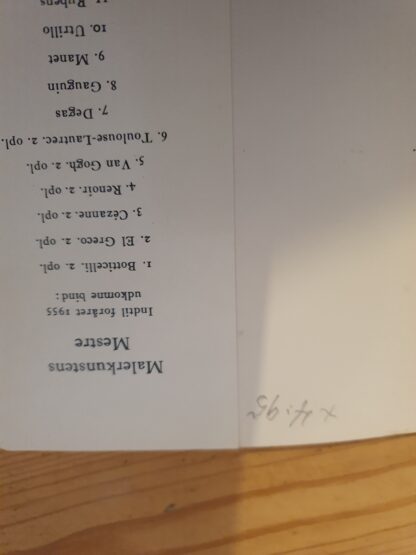 Malerkunstens
Mestre
Indtil foråret 1955
udkomne bind:
1. Botticelli. 2. opl.
2. El Greco. 2. opl.
3. Cézanne. 2. opl.
4. Renoir. 2. opl.
5. Van Gogh. 2. opl.
6. Toulouse-Lautrec. 2. opl.
7. Degas
8. Gauguin
9. Manet
10. Utrillo
11. Rubens